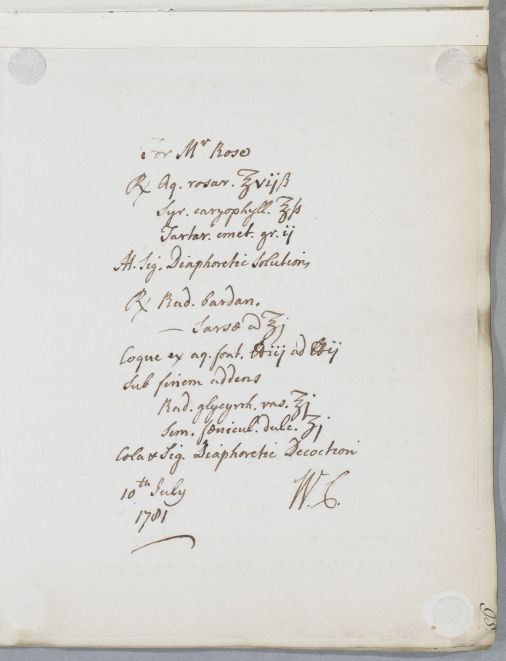 For Mr Rose
℞ Aq. rosar. ℥vijß
Syr. caryophyll. ℥ß
Tartar. emet. gr. ij
M. Sig. Diaphoretic Solution
℞ Rad. bardan.
— Sarsæ a̅ ℥j
Coque ex aq. font. ℔iij ad ℔ij
Sub finem addens
Rad. glycyrrh. ras. ℥j
Sem. fænicul. dulc. ʒj
Cola & Sig. Diaphoretic Decoction
10th July
1781
W. C.